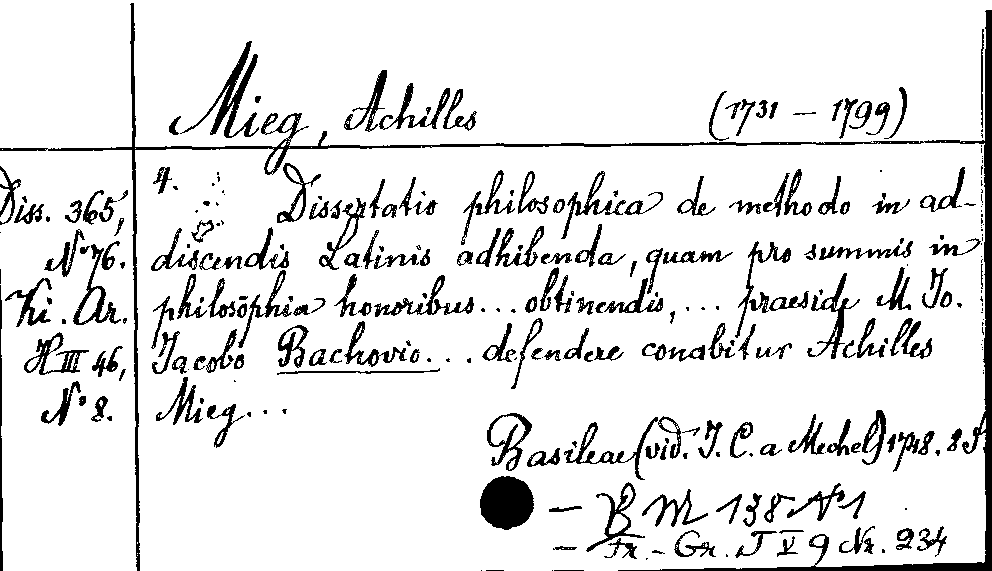 Mieg, Achilles (1731 – 1799)
4.
Diss. 365, Dissertatio philosophica de methodo in ad-
No 76. discendis Latinis adhibenda, quam pro summis in
Ki. Ar. philosophia honoribus... obtinendis,... praeside M. Jo.
H III 46, Jacobo Bachovio... defendere conabitur Achilles
No 8. Mieg...
Basileae (vid. J. C. a Mechel) 1748. 8 S.
– B M 138 No 1
– Fr.-Gr. J V 9 Nr. 234